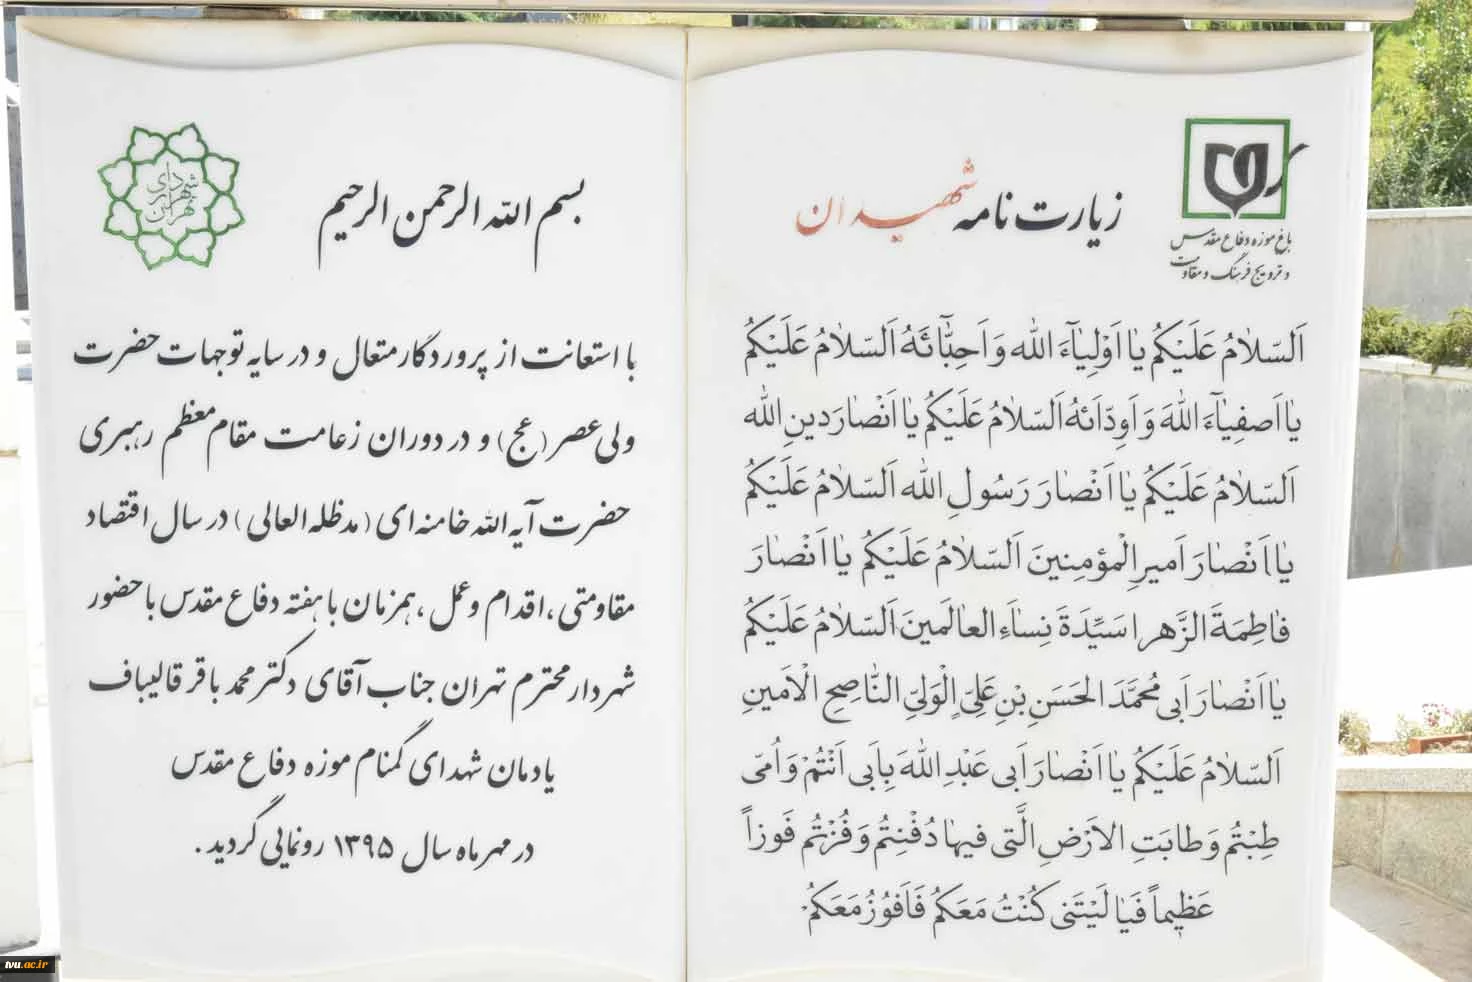 باغ موزه دفاع مقدس
و ترویج فرهنگ و مقاومت
زیارت نامه شهیدان
اَلسّلامُ عَلَیْکُم یا اَوْلِیآءَ اللّه وَ اَحِبّآئَهُ اَلسّلامُ عَلَیْکُم
یا اَصفِیآءَ اللّهَ وَ اَوِدّآئَهُ اَلسّلامُ عَلَیْکُم یا اَنْصارَ دینِ اللّه
اَلسّلامُ عَلَیْکُم یا اَنْصارَ رَسُولِ اللّه اَلسّلامُ عَلَیْکُم
یا اَنْصارَ اَمیرِالْمؤمِنینَ اَلسّلامُ عَلَیْکُم یا اَنْصارَ
فاطِمَةَ الزَّهرا سَیِّدَةَ نِساءَ العالَمینَ اَلسّلامُ عَلَیْکُم
یا اَنْصارَ اَبی مُحمَّدَ الحَسَنِ بْنِ عَلِیٍّ الْوَلیِّ النّاصِحِ الْاَمینِ
اَلسّلامُ عَلَیْکُم یا اَنْصارَ اَبی عَبْدِ اللّهَ بِاَبی اَنْتُمْ وَ اُمّی
طِبْتُم وَ طابَتِ الاَرْضِ الَّتی فیها دُفْنِتُم وَ فُزْتُم فَوزاً
عَظیماً فَیا لَیْتَنی کُنْتُ مَعَکُم فَاَفوُزُ مَعَکُم.
شهرداری تهران
بسم الله الرحمن الرحیم
با استعانت از پروردگار متعال و در سایه توجهات حضرت
ولی عصر (عج) و در دوران زعامت مقام معظم رهبری
حضرت آیه الله خامنه ای (مدظله العالی) در سال اقتصاد
مقاومتی، اقدام و عمل، همزمان با هفته دفاع مقدس با حضور
شهردار محترم تهران جناب آقای دکتر محمد باقر قالیباف
یادمان شهدای گمنام موزه دفاع مقدس
در مهر ماه سال ۱۳۹۵ رونمایی گردید.
tvu.ac.ir